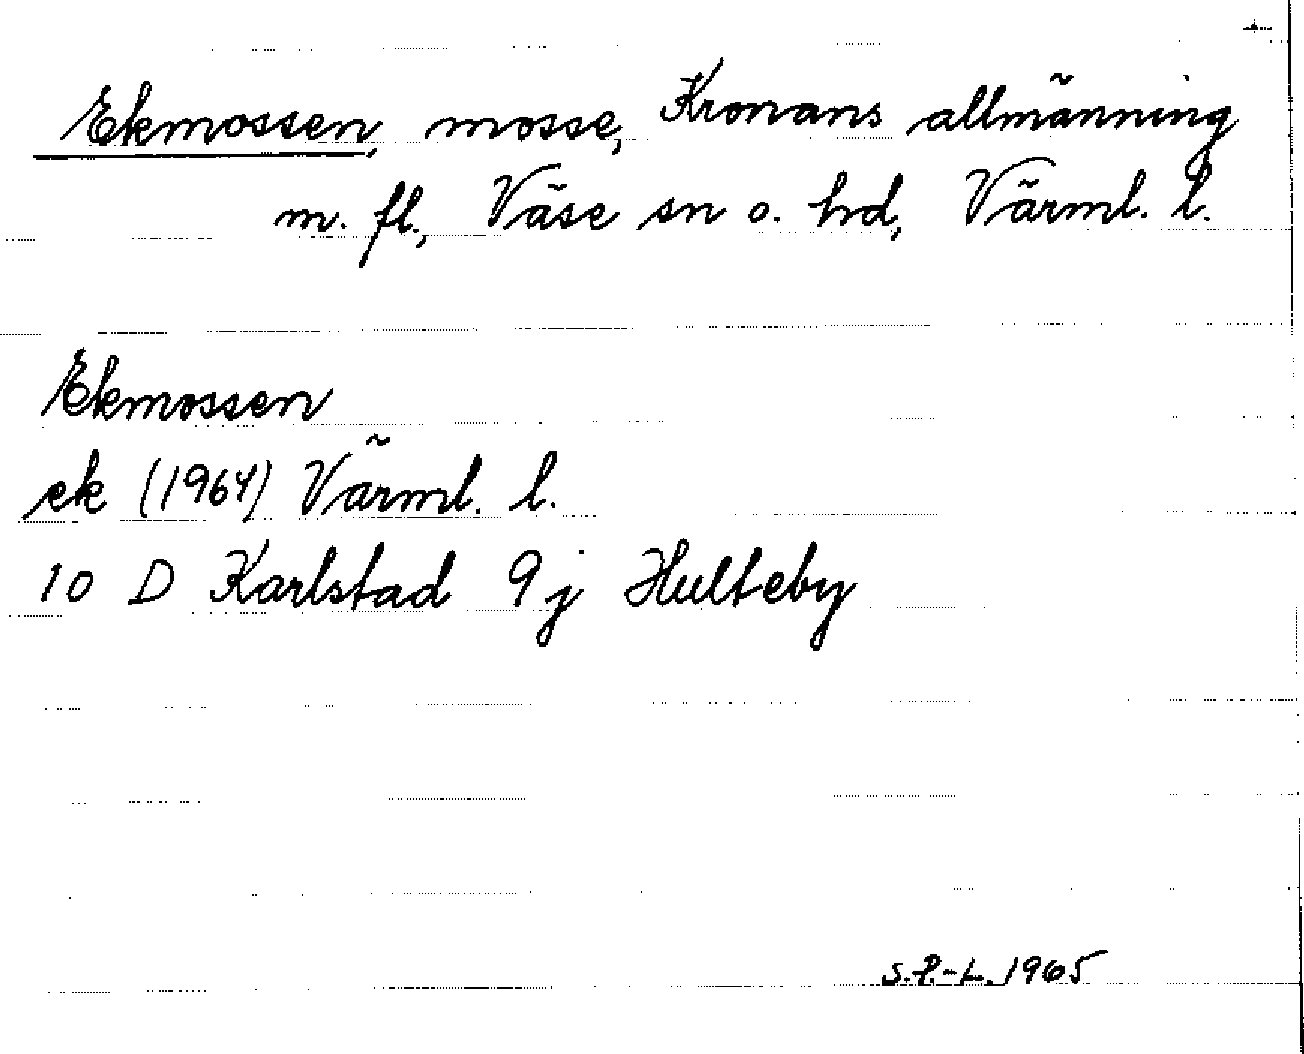 Ekmossen, mosse, Kronans allmänning
m. fl., Väse sn o. hd, Värml. l.
Ekmossen
ek (1964) Värml. l.
10 D Karlstad 9 j Hulteby
S.P.-L. 1965